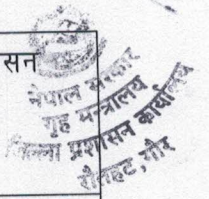 सन
नेपाल सरकार
गृह मन्त्रालय
जिल्ला प्रशासन कार्यालय
रौतहट, गौर